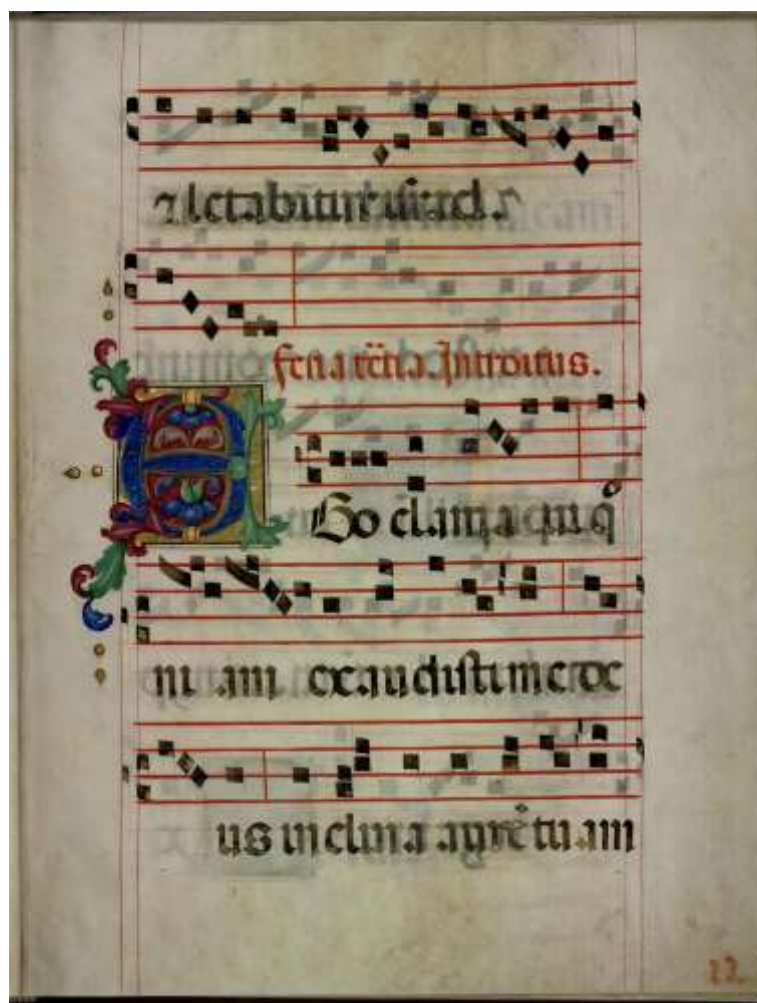 ⁊ letabitur israel.
feria tc̃ia. Introitus.
EGo clamaui qͦ
ni am exaudisti me de
us inclina aurē tu am
22